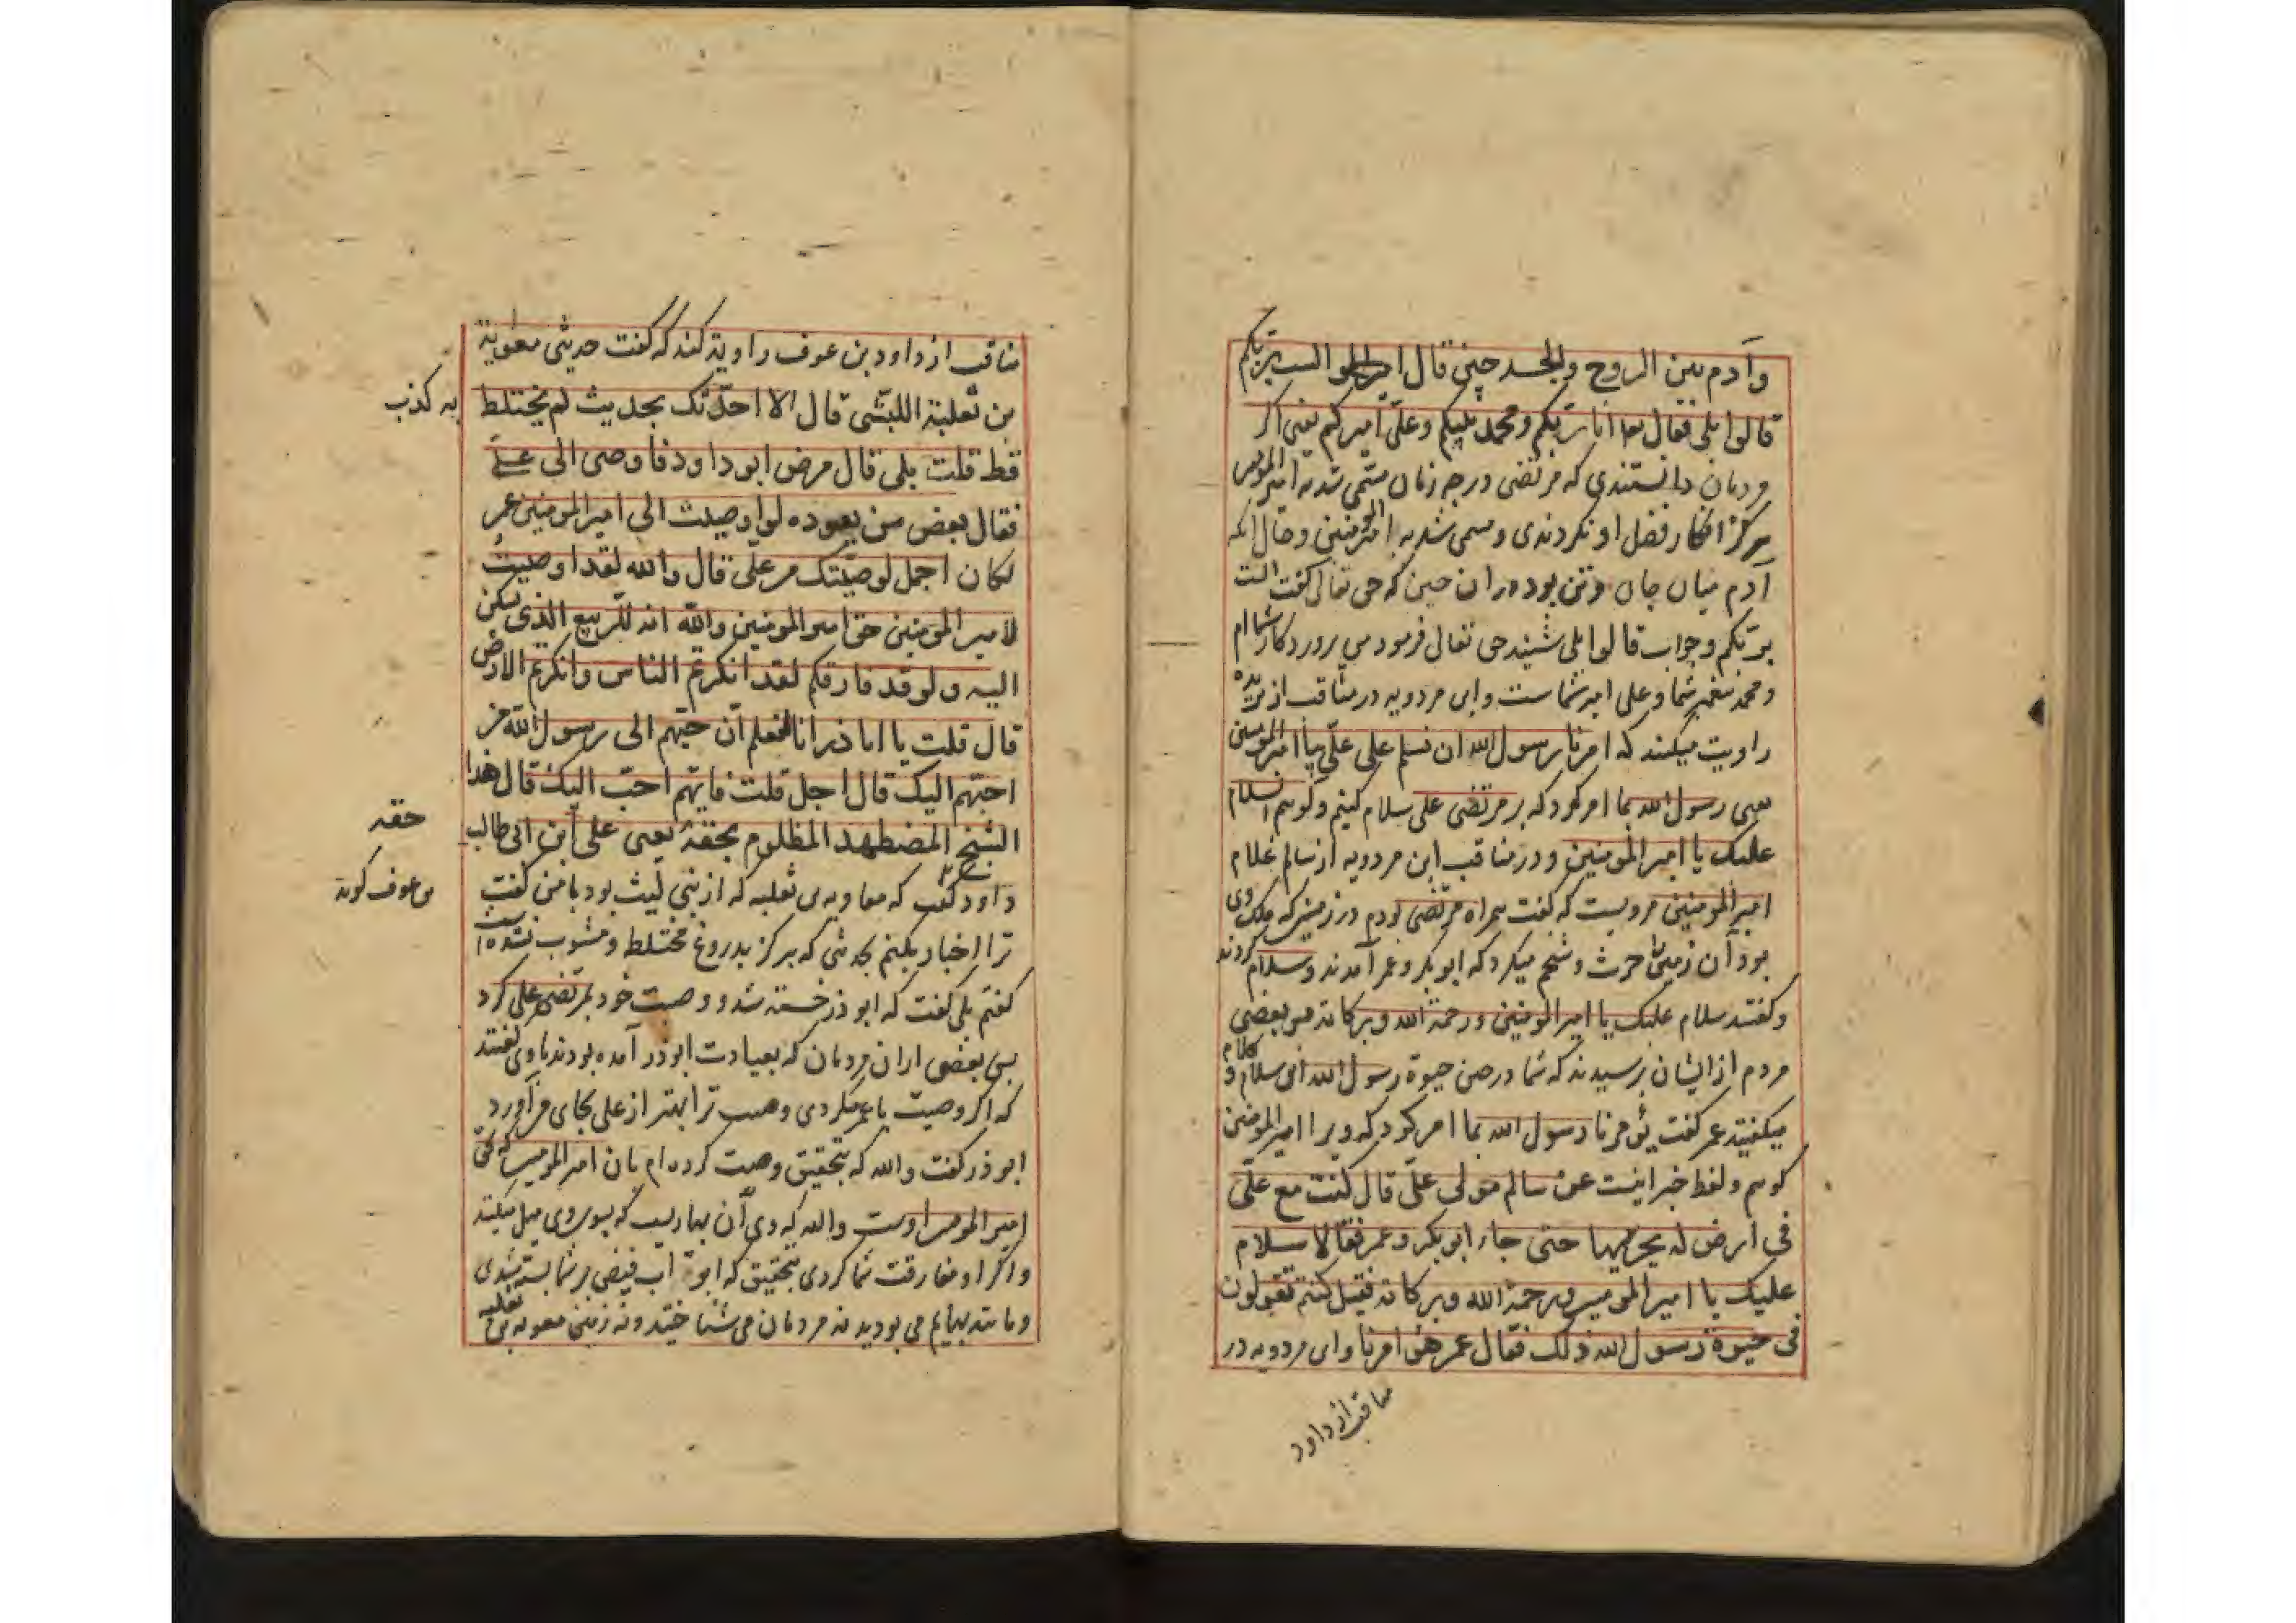 وآدم بین الروح والجسد حین قال الست بربکم
قالوا بلی فقال انا ربکم ومحمد نبیکم وعلی امیرکم یعنی اکر
مردمان دانستندی که مرتضی در چه زمان مسمی شد به امیر المومنین
هرکز انکار فضل او نکردندی و مسمی شد به امیر المومنین و حال آنکه
آدم میان جان و تن بود در ان حین که حق تعالی کفت الست
بربکم و جواب قالوا بلی شنید حق تعالی فرمود من پروردکار شما ام
و محمد پیغمبر شما و علی امیر شماست وابن مردویه در مناقب از بریده
راویت میکند که امرنا رسول الله ان نسلم علی علی بیا امیر المومنین
یعنی رسول الله بما امر کرد که بر مرتضی علی سلام کنیم و کوییم السلام
علیک یا امیر المومنین و در مناقب ابن مردویه از سالم غلام
امیر المومنین مرویست که کفت همراه مرتضی بودم در زمینی که ملک وی
بود آن زمین حرث و شخم میکرد که ابوبکر و عمر آمدند و سلام کردند
و کفتند سلام علیک یا امیر المومنین ورحمة الله وبرکاته پس بعضی
مردم از ایشان پرسیدند که شما در حین حیوة رسول الله این سلام و کلام
میکفتید عمر کفت رسول الله بما امر کرد که ویرا امیر المومنین
کوییم ولفظ خبر اینست عن سالم مولی علی قال کنت مع علی
فی ارض له یحرثها حتی جاء ابوبکر وعمر فقالا سلام
علیک یا امیر المومنین ورحمة الله وبرکاته فقیل کنتم تقولون
فی حیوة رسول الله ذلک فقال عمر هو امرنا وابن مردویه در
مناقب از داود
مناقب از داود بن عوف راویت کند که کفت حدثنی معویة
بن ثعلبة اللیثی قال الا احدثک بحدیث لم یختلط
به کذب
قط قلت بلی قال مرض ابو داود فاوصی الی علی
فقال بعض من یعوده لو اوصیت الی امیر المومنین عمر
لکان اجمل لوصیتک من علی قال والله لقد اوصیت
لامیر المومنین حق امیر المومنین والله انه للربیع الذی یسکن
الیه ولو قد فارقکم لقد انکرتم الناس وانکرتم الارض
قال قلت یا ابا ذر انا لنعلم ان احبهم الی رسول الله
احبهم الیک قال اجل قلت فایهم احب الیک قال هذا
الشیخ المضطهد المظلوم بحقه یعنی علی ابن ابی طالب
حقه
داود کفت که معاویه بن ثعلبه که از بنی لیث بود با من کفت
بن عوف کوید
ترا اخبار بکنم بحدیثی که هرکز بدروغ مختلط و مشوب نشده است
کفتم بلی کفت که ابوذر خسته شد و وصیت خود بمرتضی علی کرد
پس بعضی از ان مردمان که بعیادت ابوذر آمده بودند با وی کفتند
که اکر وصیت با عمر میکردی وصیت ترا بهتر از علی بجای می آورد
ابوذر کفت والله که بتحقیق وصیت کرده ام بان امیر المومنین که حق
امیر المومنین اوست والله که وی آن بهاریست که بسوی وی میل میکند
واکر او مفارقت شما کردی بتحقیق که ابواب فیض بر شما بسته شدی
و مانند بهایم می بودید نه مردمان می شناختید و نه زمین معویه بن ثعلبه